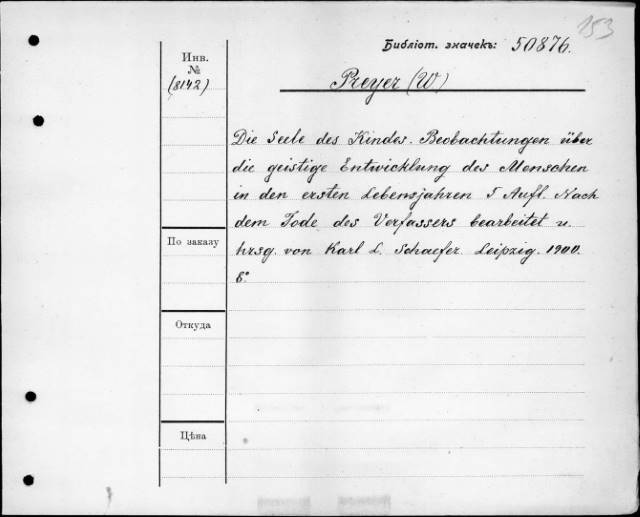 153
Библіот. значекъ: 50876.
Инв.
№
(8142)
Preyer (W)
Die Seele des Kindes. Beobachtungen über
die geistige Entwicklung des Menschen
in den ersten Lebensjahren 5 Aufl. Nach
dem Tode des Verfassers bearbeitet u.
hrsg. von Karl L. Schaefer. Leipzig. 1900.
8°
По заказу
Откуда
Цѣна